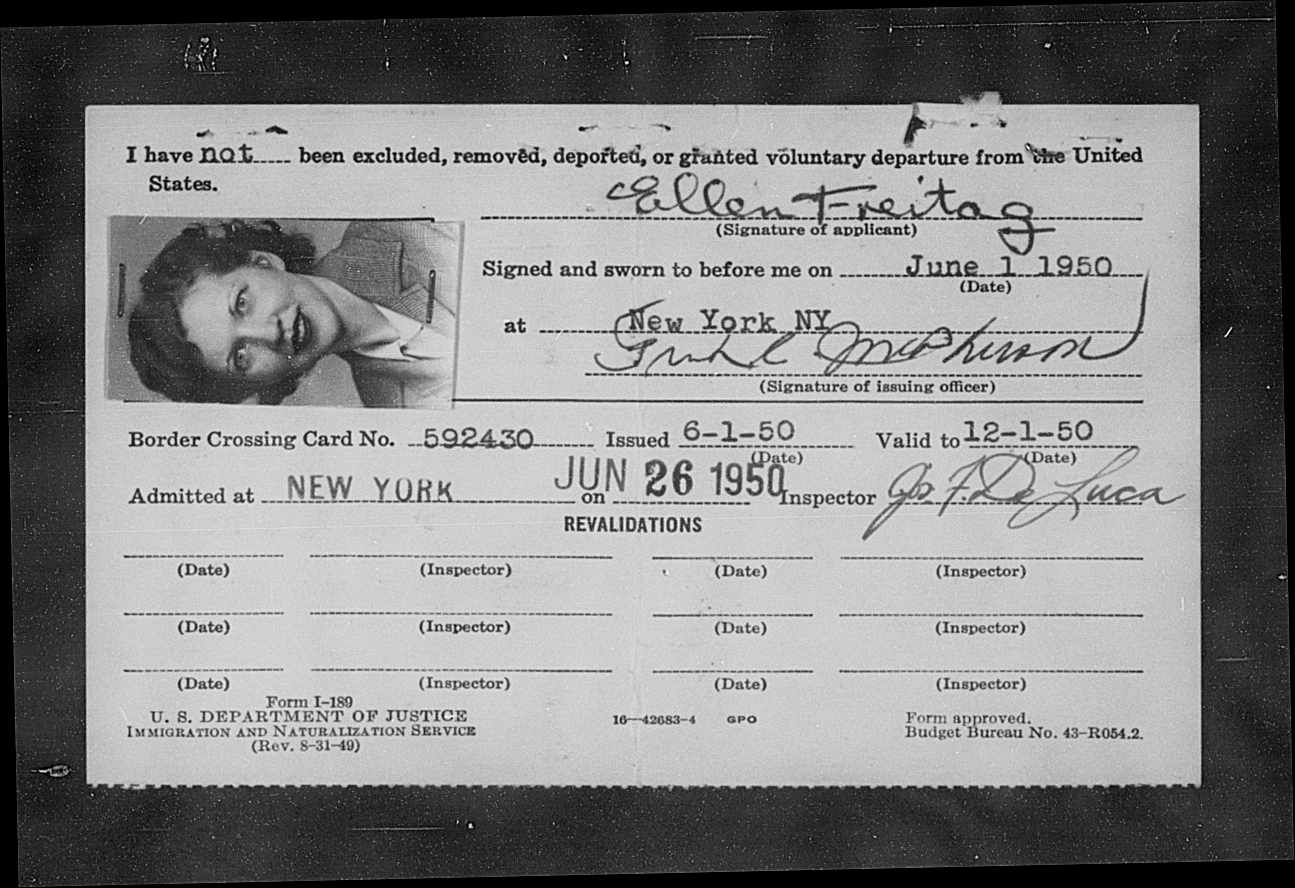 I have not been excluded, removed, deported, or granted voluntary departure from the United
States.
Ellen Freitag
(Signature of applicant)
Signed and sworn to before me on June 1 1950
(Date)
at New York NY
McPherson
(Signature of issuing officer)
Border Crossing Card No. 592430 Issued 6-1-50 Valid to 12-1-50
(Date) (Date)
Admitted at NEW YORK on JUN 26 1950 Inspector Jos F. De Luca
REVALIDATIONS
(Date) (Inspector) (Date) (Inspector)
(Date) (Inspector) (Date) (Inspector)
(Date) (Inspector) (Date) (Inspector)
Form I-189
U. S. DEPARTMENT OF JUSTICE 16—42683-4 GPO Form approved.
IMMIGRATION AND NATURALIZATION SERVICE Budget Bureau No. 43-R054.2.
(Rev. 8-31-49)